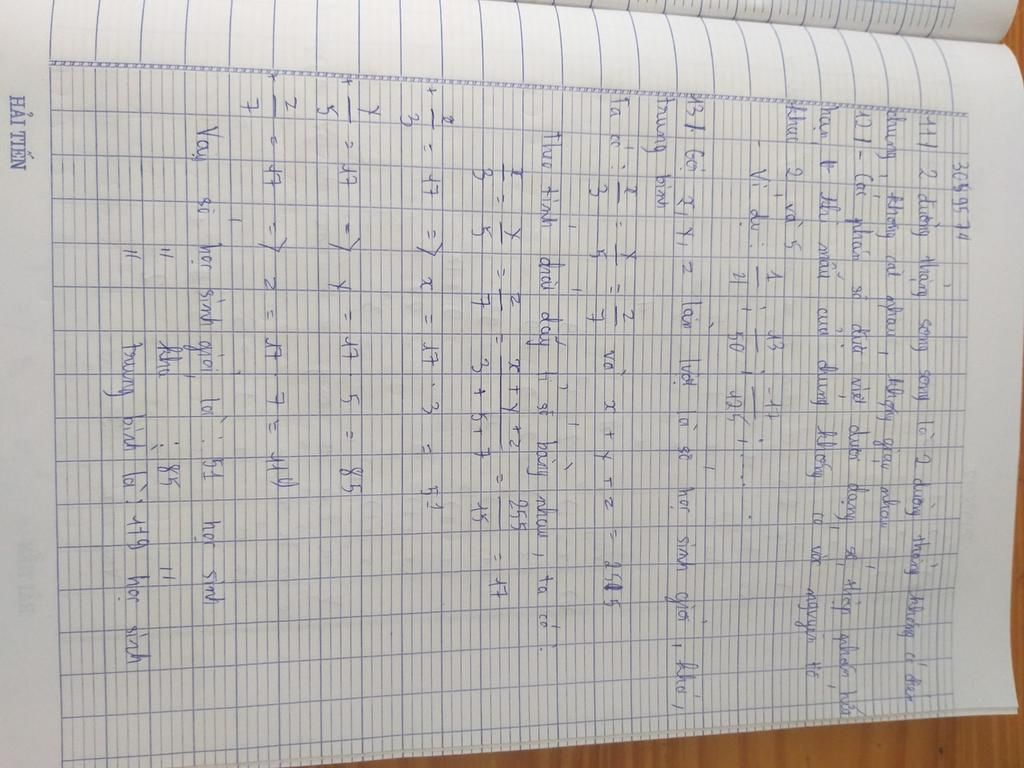 3089574
11/ 2 đường thẳng song song là 2 đường thẳng không có điểm
chung, không cắt nhau, không giao nhau
12/ - Các phân số được viết dưới dạng số thập phân hữu
hạn khi mẫu của chúng không có ước nguyên tố
khác 2 và 5
- Ví dụ: 1/21; 13/50; -17/125; .....
13/ Gọi x, y, z lần lượt là số học sinh giỏi, khá,
trung bình
Ta có: x/3 = y/5 = z/7 và x + y + z = 255
Theo tính chất dãy tỉ số bằng nhau, ta có:
x/3 = y/5 = z/7 = x+y+z/3+5+7 = 255/15 = 17
+ x/3 = 17 => x = 17 . 3 = 51
+ y/5 = 17 => y = 17 . 5 = 85
+ z/7 = 17 => z = 17 . 7 = 119
Vậy số học sinh giỏi là: 51 học sinh
" khá : 85 "
" trung bình là: 119 học sinh
HẢI TIẾN